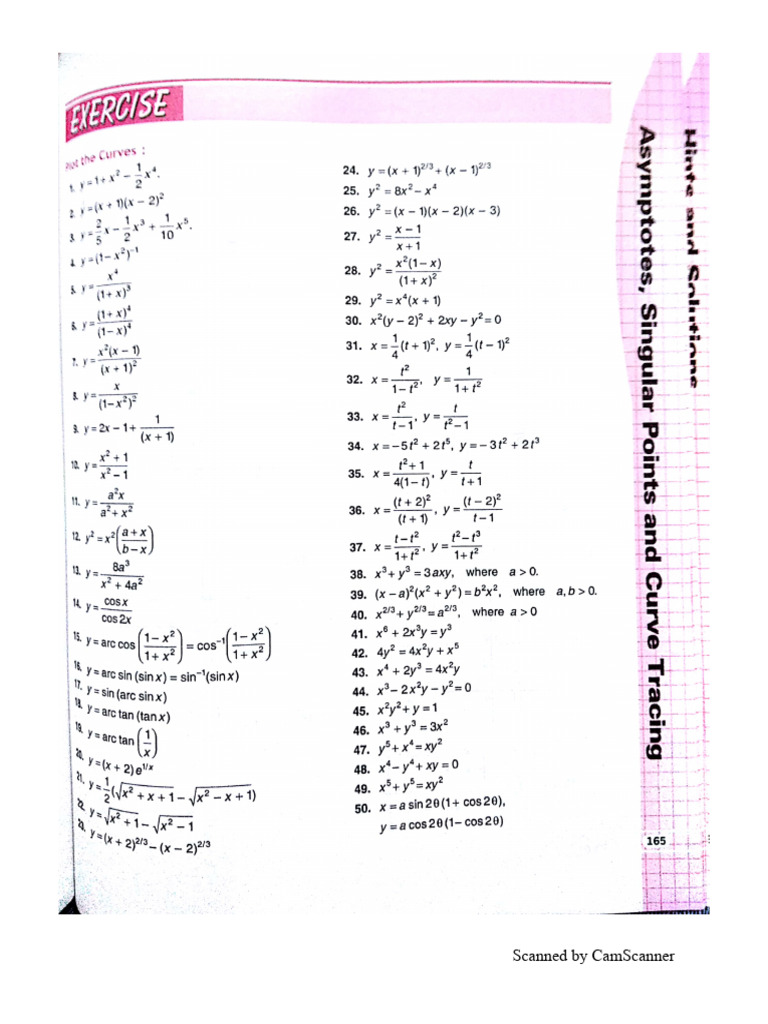 EXERCISE
Plot the Curves :
1. y = 1 + x² − 1/2 x⁴.
2. y = (x + 1)(x − 2)²
3. y = 2/5 x − 1/2 x³ + 1/10 x⁵.
4. y = (1 − x²)⁻¹
5. y = x⁴/(1 + x)³
6. y = (1 + x)⁴/(1 − x)⁴
7. y = x²(x − 1)/(x + 1)²
8. y = x/(1 − x²)²
9. y = 2x − 1 + 1/(x + 1)
10. y = (x² + 1)/(x² − 1)
11. y = a²x/(a² + x²)
12. y² = x²((a + x)/(b − x))
13. y = 8a³/(x² + 4a²)
14. y = cos x/cos 2x
15. y = arc cos((1 − x²)/(1 + x²)) = cos⁻¹((1 − x²)/(1 + x²))
16. y = arc sin (sin x) = sin⁻¹(sin x)
17. y = sin (arc sin x)
18. y = arc tan (tan x)
19. y = arc tan(1/x)
20. y = (x + 2) e^(1/x)
21. y = 1/2(√(x² + x + 1) − √(x² − x + 1))
22. y = √(x² + 1) − √(x² − 1)
23. y = (x + 2)^(2/3) − (x − 2)^(2/3)
24. y = (x + 1)^(2/3) + (x − 1)^(2/3)
25. y² = 8x² − x⁴
26. y² = (x − 1)(x − 2)(x − 3)
27. y² = (x − 1)/(x + 1)
28. y² = x²(1 − x)/(1 + x)²
29. y² = x⁴(x + 1)
30. x²(y − 2)² + 2xy − y² = 0
31. x = 1/4(t + 1)², y = 1/4(t − 1)²
32. x = t²/(1 − t²), y = 1/(1 + t²)
33. x = t²/(t − 1), y = t/(t² − 1)
34. x = −5t² + 2t⁵, y = −3t² + 2t³
35. x = (t² + 1)/(4(1 − t)), y = t/(t + 1)
36. x = (t + 2)²/(t + 1), y = (t − 2)²/(t − 1)
37. x = (t − t²)/(1 + t²), y = (t² − t³)/(1 + t²)
38. x³ + y³ = 3axy, where a > 0.
39. (x − a)²(x² + y²) = b²x², where a, b > 0.
40. x^(2/3) + y^(2/3) = a^(2/3), where a > 0
41. x⁶ + 2x³y = y³
42. 4y² = 4x²y + x⁵
43. x⁴ + 2y³ = 4x²y
44. x³ − 2x²y − y² = 0
45. x²y² + y = 1
46. x³ + y³ = 3x²
47. y⁵ + x⁴ = xy²
48. x⁴ − y⁴ + xy = 0
49. x⁵ + y⁵ = xy²
50. x = a sin 2θ (1 + cos 2θ),
y = a cos 2θ (1 − cos 2θ)
Hints and Solutions
Asymptotes, Singular Points and Curve Tracing
165
Scanned by CamScanner